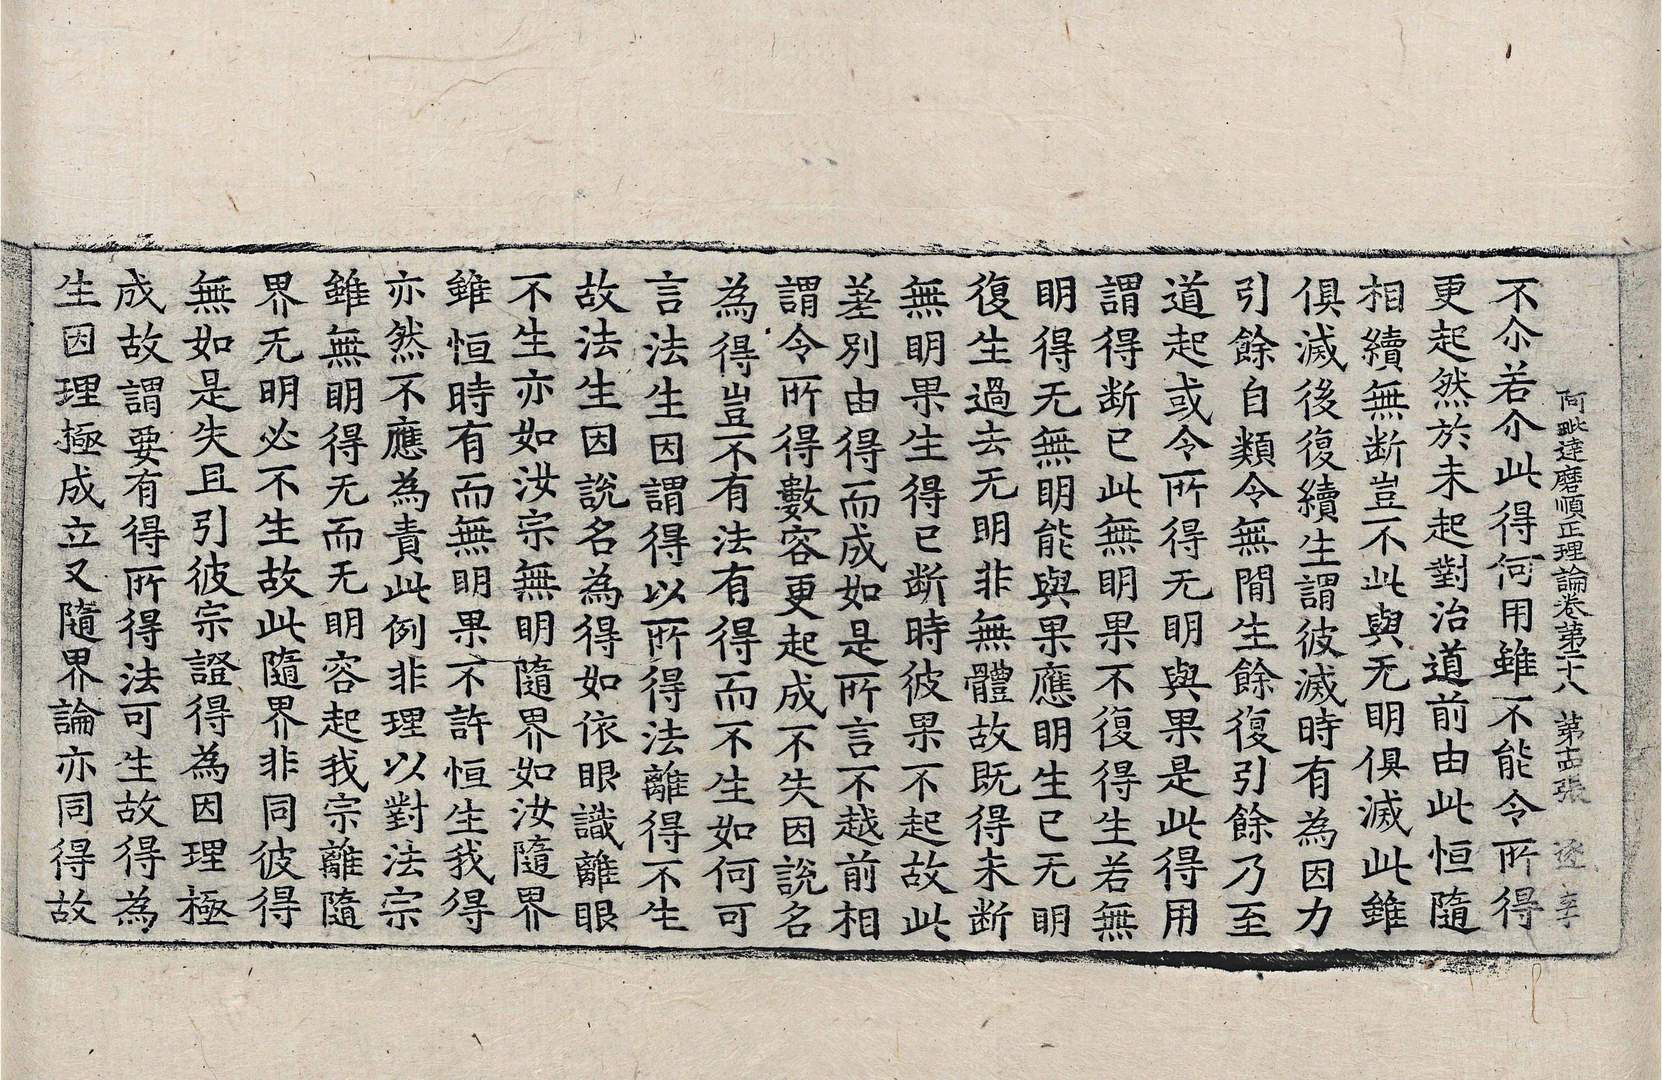 阿毗達磨順正理論卷第三十八 第十四張 逐 李
不尒若尒此得何用雖不能令所得
更起然於未起對治道前由此恒隨
相續無断豈不此與无明俱滅此雖
俱滅後復續生謂彼滅時有為因力
引餘自類令無間生餘復引餘乃至
道起或令所得无明與果是此得用
謂得断已此無明果不復得生若無
明得无無明能與果應明生已无明
復生過去无明非無體故既得未断
無明果生得已断時彼果不起故此
差別由得而成如是所言不越前相
謂令所得數容更起成不失因說名
為得豈不有法有得而不生如何可
言法生因謂得以所得法離得不生
故法生因說名為得如依眼識離眼
不生亦如汝宗無明隨界如汝隨界
雖恒時有而無明果不許恒生我得
亦然不應為責此例非理以對法宗
雖無明得无而无明容起我宗離隨
界无明必不生故此隨界非同彼得
無如是失且引彼宗證得為因理極
成故謂要有得所得法可生故得為
生因理極成立又隨界論亦同得故